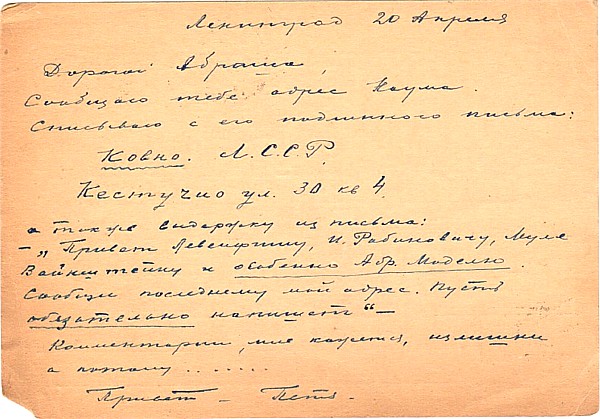 Ленинград 20 Апреля
Дорогой Абраша,
Сообщаю тебе адрес Наума.
Списываю с его подлинного письма:
Ковно. Л.С.С.Р.
Кестучио ул. 30 кв 4
а также выдержку из письма:
– „Привет Левенфишу, И. Рабиновичу, Муле
Вайнштейну и особенно Абр. Моделю.
Сообщи последнему мой адрес. Пусть
обязательно напишет“ –
Комментарии, мне кажется, излишни
а потому ........
Привет – Петя.